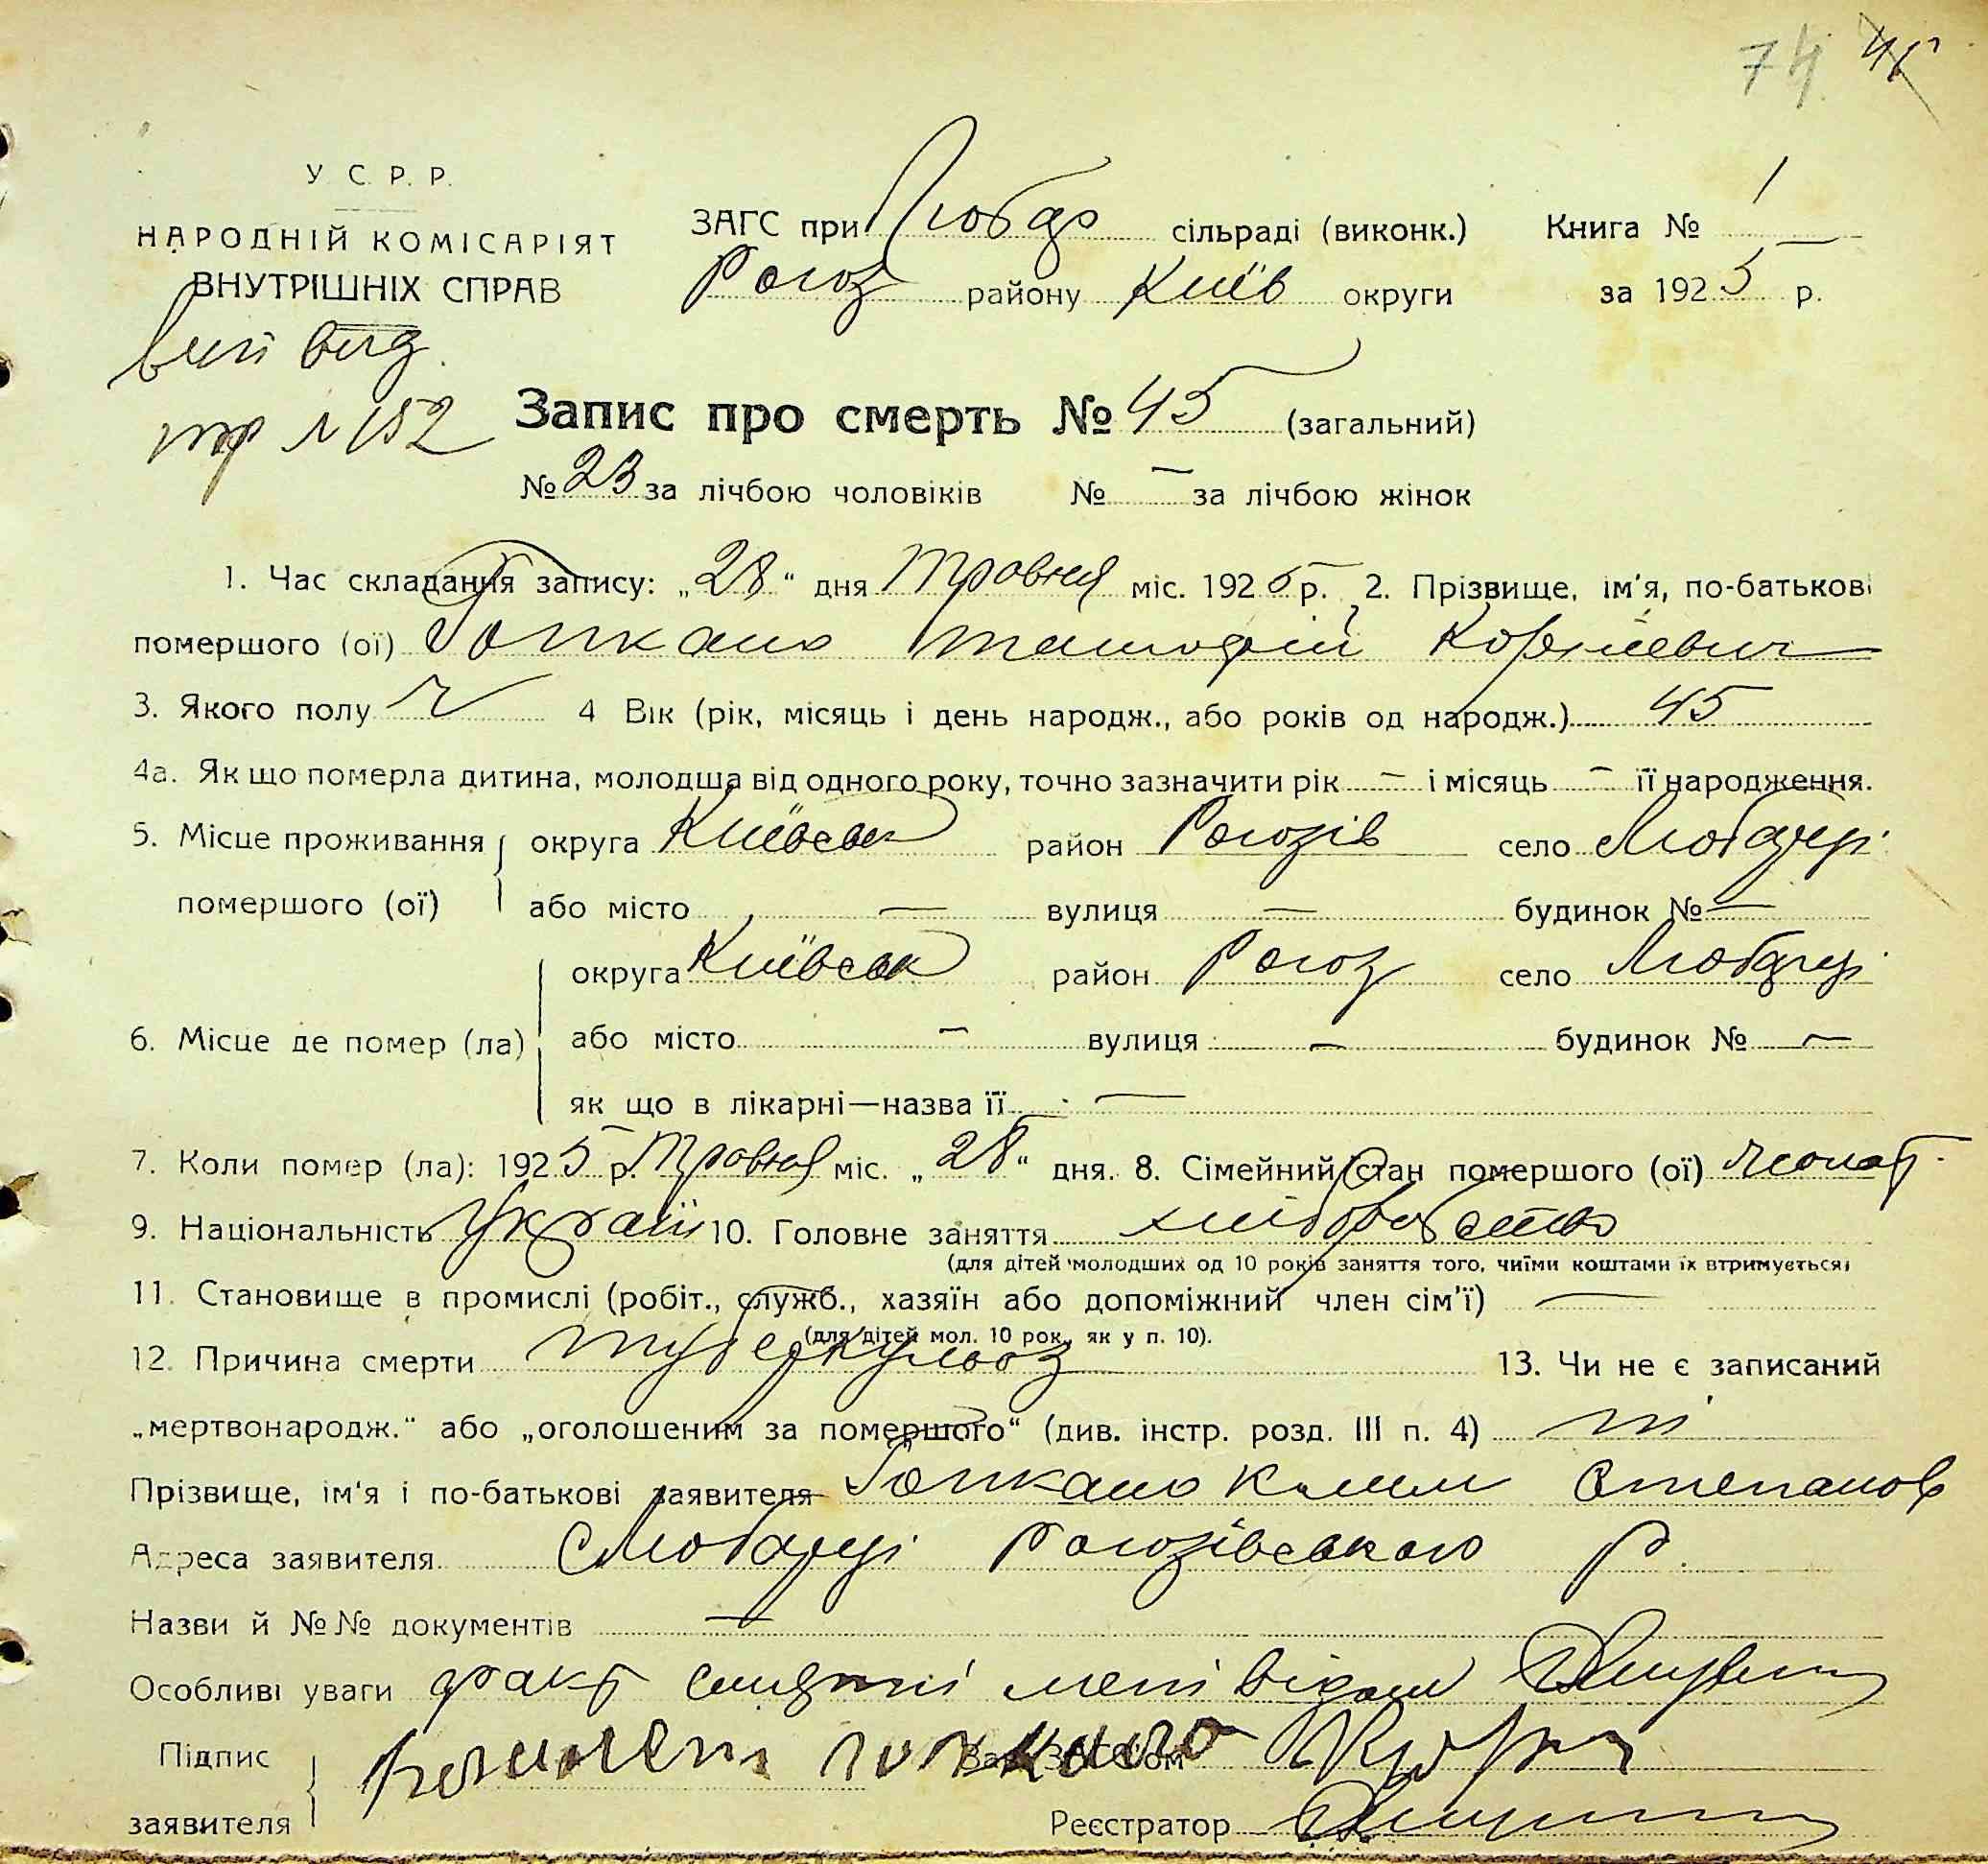 74 45
У. С. Р. Р.
НАРОДНІЙ КОМІСАРІЯТ
ВНУТРІШНІХ СПРАВ
ЗАГС при Любар сільраді (виконк.) Книга № 1
Рогоз району Київ округи за 1925 р.
№ 152
Запис про смерть № 45 (загальний)
№ 23 за лічбою чоловіків № — за лічбою жінок
1. Час складання запису: „28“ дня Травня міс. 1925 р. 2. Прізвище, ім'я, по-батькові
помершого (ої) Гопкало Тимофій Корнієвич
3. Якого полу ч 4 Вік (рік, місяць і день народж., або років од народж.) 45
4а. Як що померла дитина, молодша від одного року, точно зазначити рік — і місяць — її народження.
5. Місце проживання округа Київськ район Рогозів село Любарці
помершого (ої) або місто — вулиця — будинок № —
округа Київськ район Рогоз село Любарці
6. Місце де помер (ла) або місто — вулиця — будинок № —
як що в лікарні—назва її —
7. Коли помер (ла): 1925 р. Травня міс. „28“ дня. 8. Сімейний стан помершого (ої) жонат
9. Національність Україн 10. Головне заняття хліборобство
(для дітей молодших од 10 років заняття того, чиїми коштами їх втримується)
11. Становище в промислі (робіт., служб., хазяїн або допоміжний член сім'ї) —
(для дітей мол. 10 рок. як у п. 10).
12. Причина смерти туберкульоз 13. Чи не є записаний
„мертвонародж.“ або „оголошеним за помершого“ (див. інстр. розд. III п. 4) ні
Прізвище, ім'я і по-батькові заявителя Гопкало Клим Степанов
Адреса заявителя с Любарці Рогозівського р.
Назви й №№ документів —
Особливі уваги факт смерті мені відом
Підпис гопкало Зав. ЗАГС'ом
заявителя Реєстратор